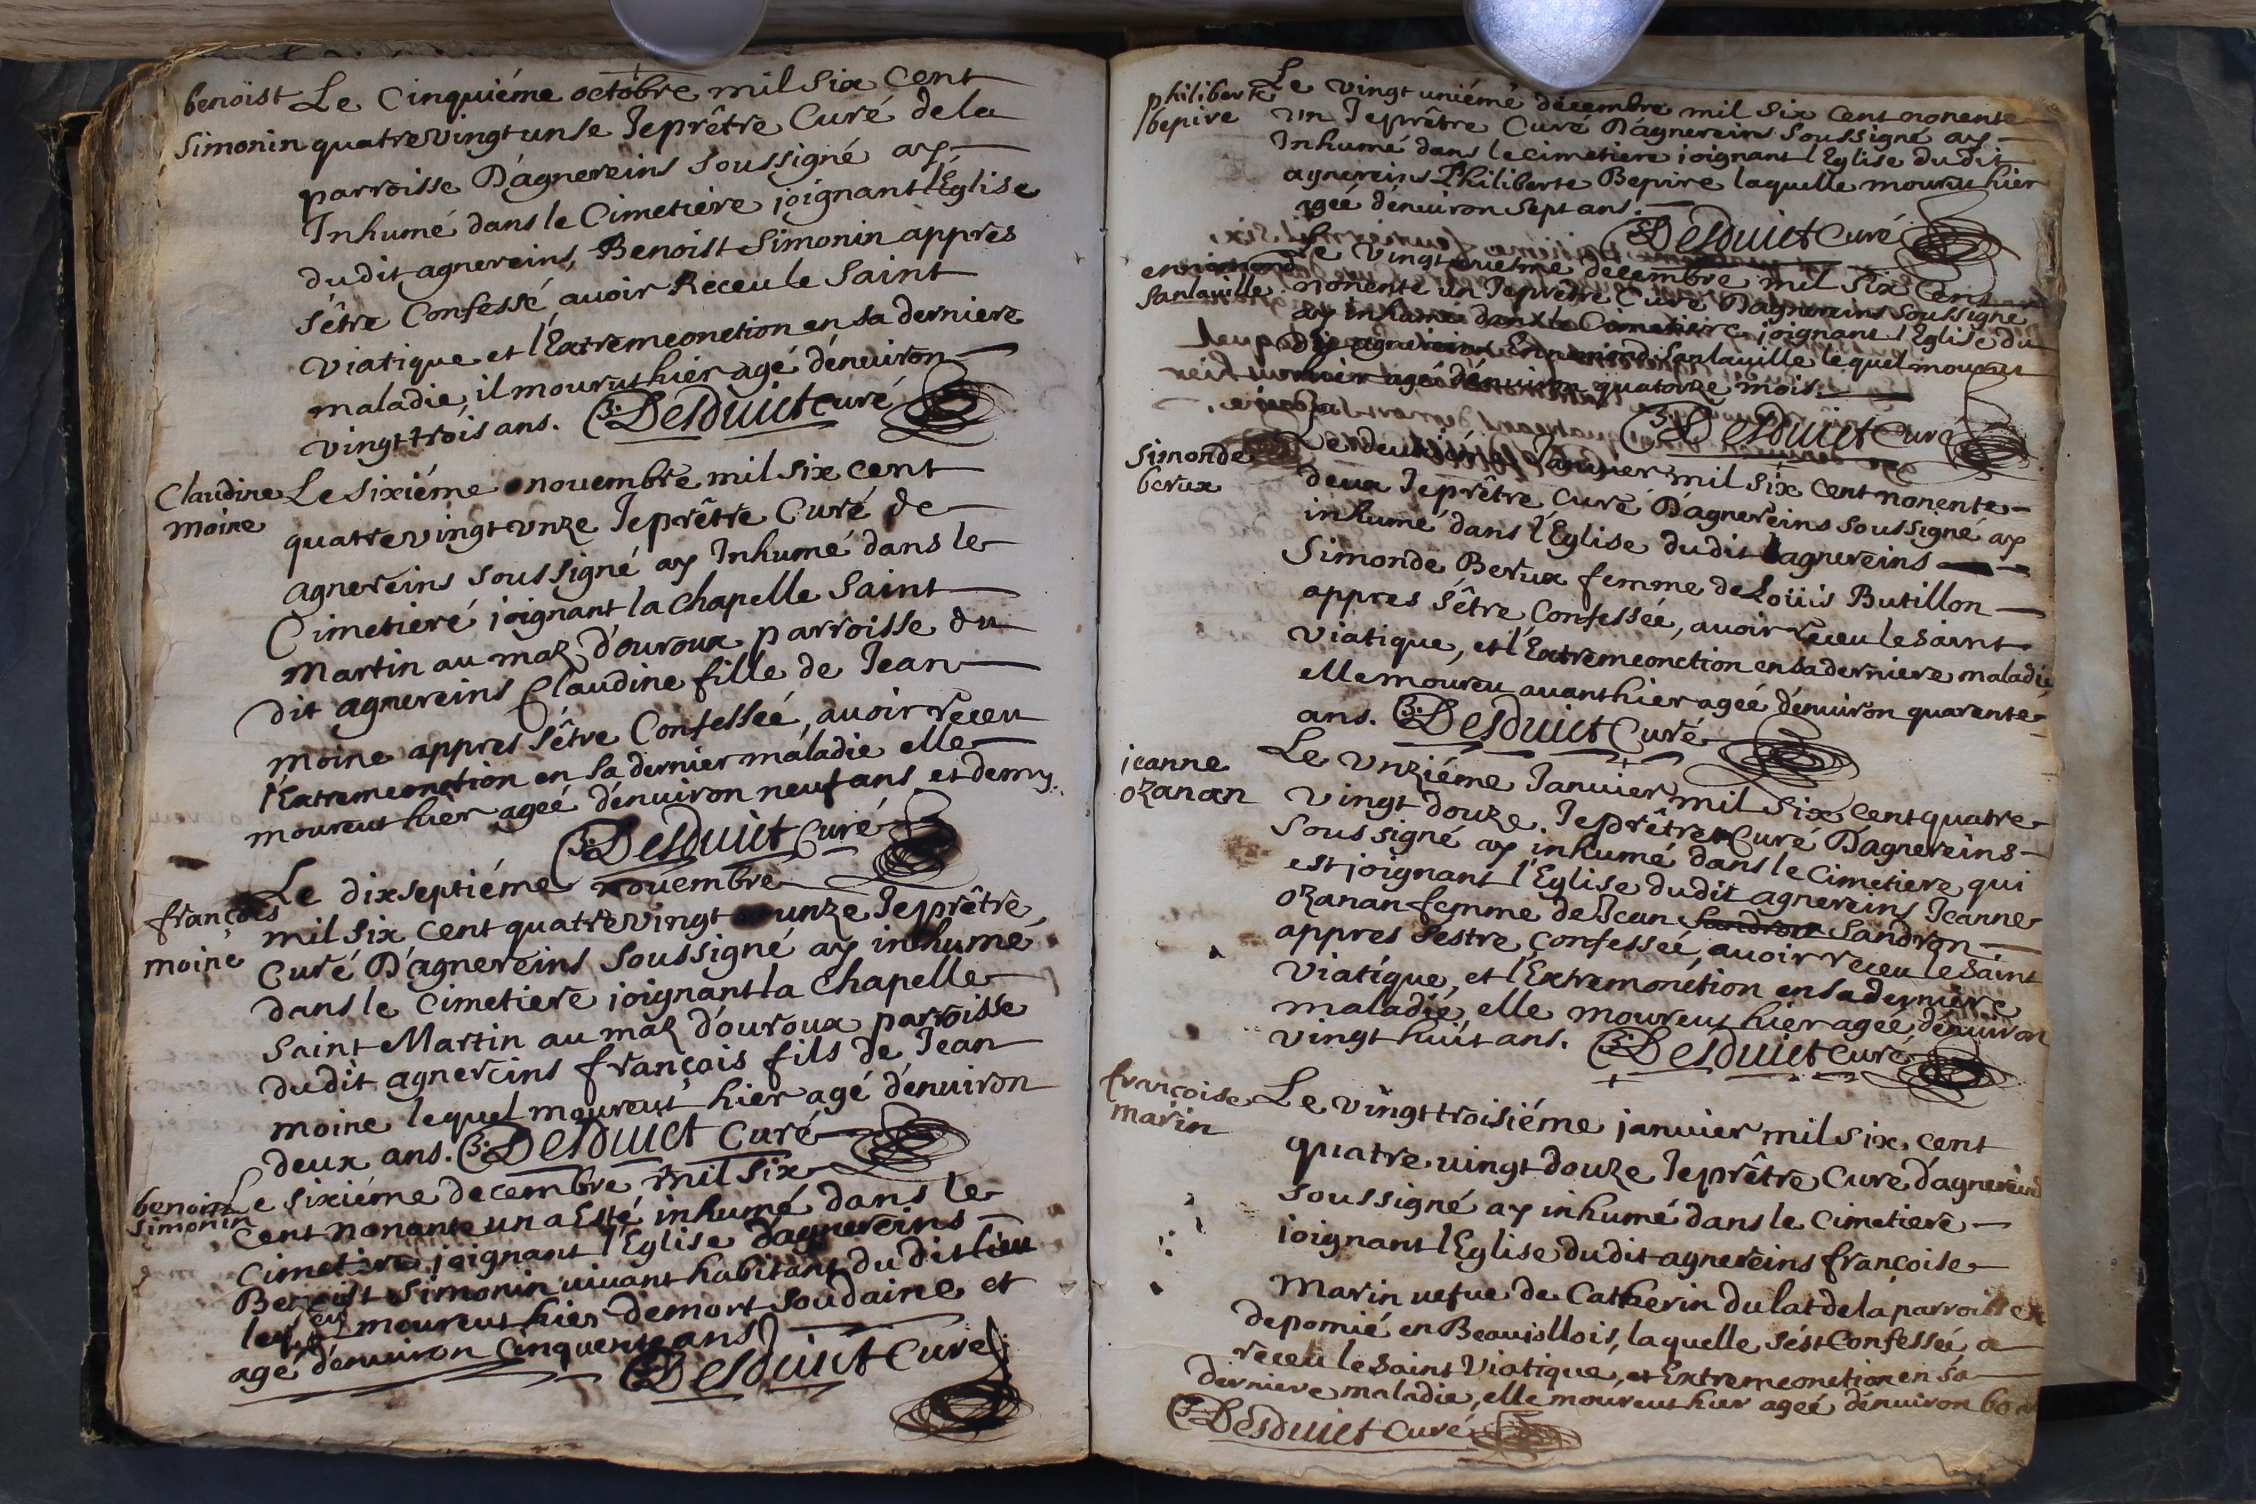 benoist
Simonin
Le Cinquiéme octobre mil six Cent
quatre vingt unse Je prêtre Curé de la
parroisse D'agnereins soussigné ay
Inhumé dans le Cimetiere joignant l'Eglise
du dit agnereins, Benoist Simonin appres
s'être Confessé, auoir Receu le Saint
Viatique et l'Extremeonction en sa derniere
maladie, il mourut hier agé d'enuiron
vingt trois ans. Desduict Curé
Claudine
moine
Le Sixiéme nouembre mil six cent
quatre vingt vnze Je prêtre Curé de
agnereins soussigné ay Inhumé dans le
Cimetieré joignant la Chapelle Saint
Martin au maz d'ouroux parroisse du
dit agnereins Claudine fille de Jean
moine appres s'être Confesseé, auoir receu
l'Extremeonction en sa dernier maladie elle
mourut hier ageé d'enuiron neuf ans et demy.
Desduict Curé
françois
moine
Le dix septiéme nouembre
mil six cent quatre vingt unze Je prêtre
Curé D'agnereins soussigné ay inhumé
dans le Cimetiere joignant la Chapelle
Saint Martin au maz d'ouroux parroisse
du dit agnereins françois fils de Jean
moine lequel mourut hier agé d'enuiron
deux ans. Desduict Curé
benoist
Simonin
Le sixiéme decembre mil six
cent nonante un a Esté inhumé dans le
Cimetiere joignant l'Eglise d'agnereins
Benoist Simonin viuant habitant du dit lieu
lequel mourut hier de mort soudaine et
agé d'enuiron Cinquente ans
Desduict Curé
philiberte
bepire
Le vingt uniémé decembre mil six cent nonente
vn Je prêtre Curé D'agnereins soussigné ay
Inhumé dans le cimetiere joignant l'Eglise du dit
agnereins Philiberte Bepire laquelle mouru hier
ageé d'enuiron sept ans.
Desduict Curé
ennemond
Sanlauille
Le vingt decembre mil six Cent
nonente un Je prêtre Curé D'agnereins soussigné
ay inhumé dans le Cimetiere joignant l'Eglise du
dit agnereins Ennemond Sanlauille lequel mouru
hier agé d'enuiron quatorze mois.
Desduict Curé
Simonde
berux
Le deuxiéme Januier mil six cent nonente
deux Je prêtre Curé D'agnereins soussigné ay
inhumé dans l'Eglise du dit agnereins
Simonde Berux femme de Loüis Butillon
appres s'être Confesseé, auoir receu le saint
Viatique, et l'Extremeonction en sa derniere maladie
elle moureu auant hier ageé d'enuiron quarente
ans. Desduict Curé
jeanne
ozanan
Le vnziéme Januier mil six cent quatre
Vingt douze. Je prêtre Curé D'agnereins
soussigné ay inhumé dans le Cimetiere qui
est joignant l'Eglise du dit agnereins Jeanne
ozanan femme de Jean Sandron Sandron
appres s'estre Confesseé, auoir receu le Saint
Viatique, et l'Extremonction en sa derniere
maladie, elle mourut hier ageé d'enuiron
vingt huit ans. Desduict Curé
françoise
marin
Le vingt troisiéme januier mil six cent
quatre uingt douze Je prêtre Curé d'agnereins
soussigné ay inhumé dans le Cimetiere
joignant l'Eglise du dit agnereins françoise
Marin uefue de Catherin dulat de la parroisse
de pomié en Beaujollois, laquelle s'est Confesseé, a
receu le saint Viatique, et Extremeonction en sa
derniere maladie, elle mourut hier ageé d'enuiron 60
Desduict Curé